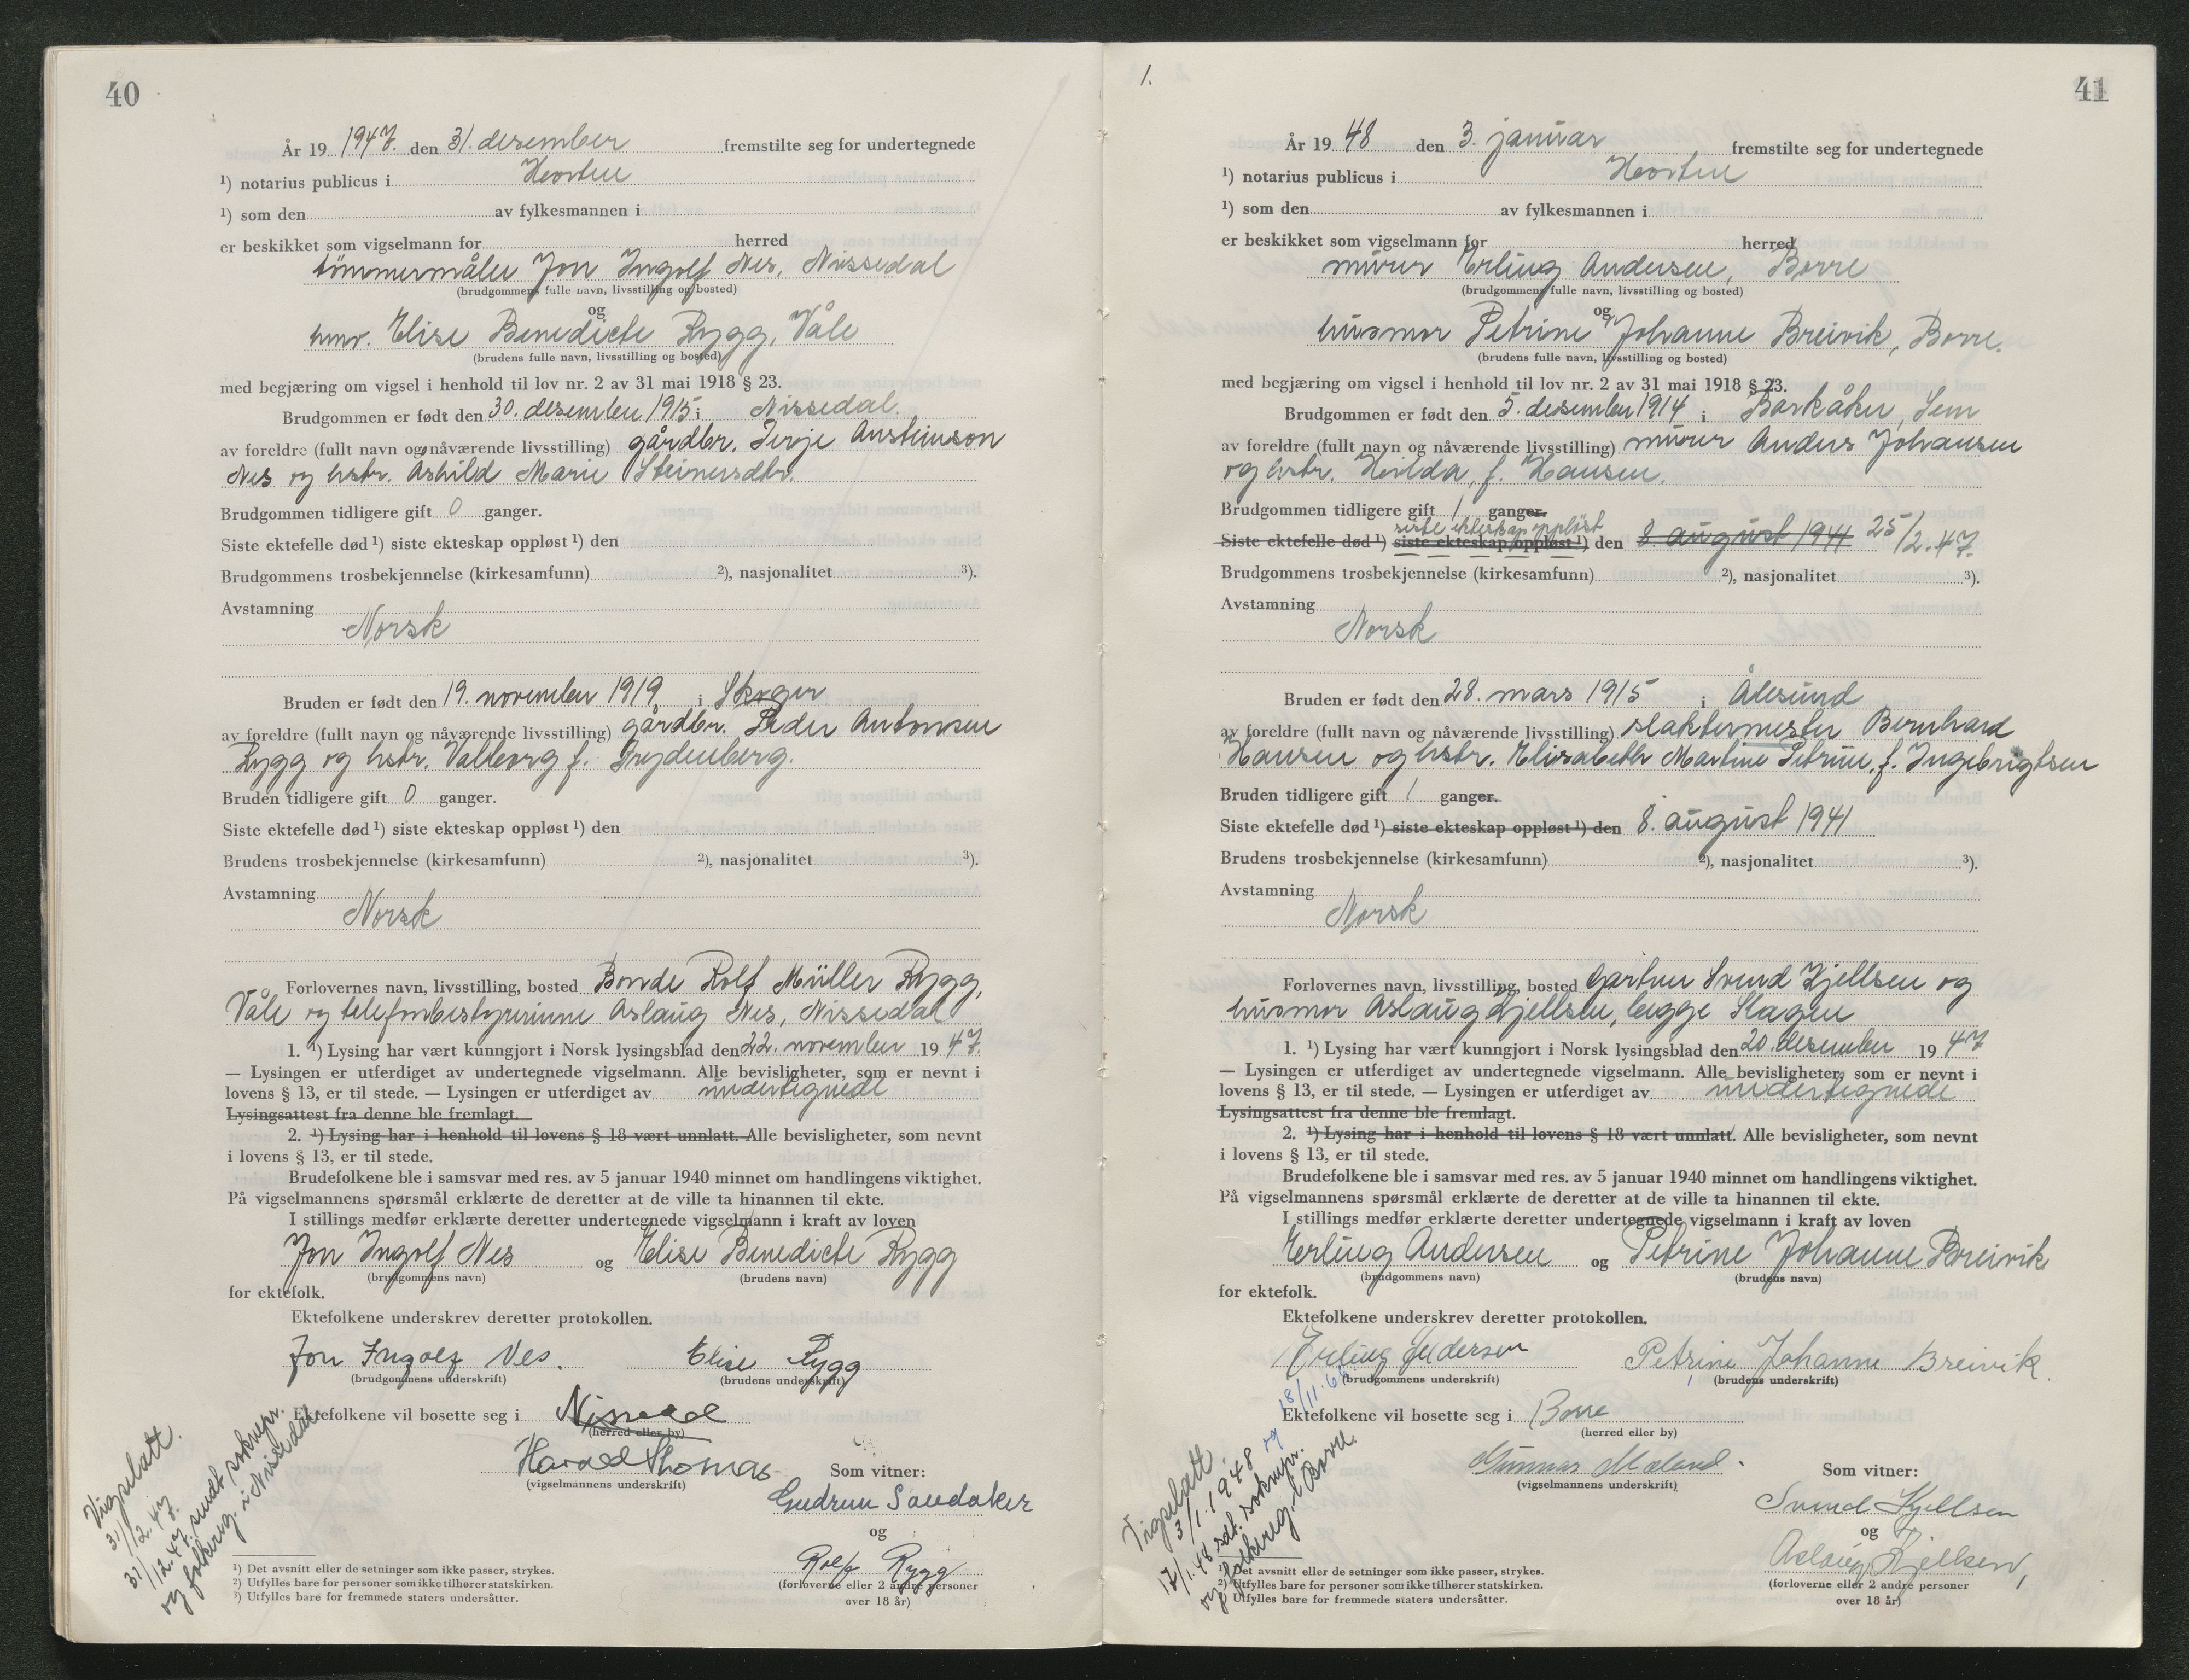 40
År 19 1947. den 31. desember fremstilte seg for undertegnede
¹) notarius publicus i Horten
¹) som den av fylkesmannen i
er beskikket som vigselmann for herred
tömmermåler Jon Ingolf Nes, Nissedal
(brudgommens fulle navn, livsstilling og bosted)
og
hmv. Elise Benedicte Rygg, Våle
(brudens fulle navn, livsstilling og bosted)
med begjæring om vigsel i henhold til lov nr. 2 av 31 mai 1918 § 23.
Brudgommen er født den 30. desember 1915 i Nissedal.
av foreldre (fullt navn og nåværende livsstilling) gårdbr. Terje Austeinson
Nes og hstr. Åshild Marie Steinersdtr.
Brudgommen tidligere gift 0 ganger.
Siste ektefelle død ¹) siste ekteskap oppløst ¹) den
Brudgommens trosbekjennelse (kirkesamfunn) ²), nasjonalitet ³).
Avstamning
Norsk
Bruden er født den 19. november 1919 i Skoger
av foreldre (fullt navn og nåværende livsstilling) gårdbr. Peder Antonsen
Rygg og hstr. Valborg f. Frydenberg.
Bruden tidligere gift 0 ganger.
Siste ektefelle død ¹) siste ekteskap oppløst ¹) den
Brudens trosbekjennelse (kirkesamfunn) ²), nasjonalitet ³).
Avstamning
Norsk
Forlovernes navn, livsstilling, bosted Bonde Rolf Müller Rygg,
Våle og telefonbestyrerinne Aslaug Nes, Nissedal
1. ¹) Lysing har vært kunngjort i Norsk lysingsblad den 22. november 19 47.
— Lysingen er utferdiget av undertegnede vigselmann. Alle bevisligheter, som er nevnt i
lovens § 13, er til stede. — Lysingen er utferdiget av undertegnede
Lysingsattest fra denne ble fremlagt.
2. ¹) Lysing har i henhold til lovens § 18 vært unnlatt. Alle bevisligheter, som nevnt
i lovens § 13, er til stede.
Brudefolkene ble i samsvar med res. av 5 januar 1940 minnet om handlingens viktighet.
På vigselmannens spørsmål erklærte de deretter at de ville ta hinannen til ekte.
I stillings medfør erklærte deretter undertegnede vigselmann i kraft av loven
Jon Ingolf Nes og Elise Benedicte Rygg
(brudgommens navn) (brudens navn)
for ektefolk.
Ektefolkene underskrev deretter protokollen.
Jon Ingolf Nes. Elise Rygg
(brudgommens underskrift) (brudens underskrift)
Ektefolkene vil bosette seg i Nissedal
(herred eller by)
Harald Thomas Som vitner:
(vigselmannens underskrift)
Gudrun Sandaker
og
Rolf Rygg
(forloverne eller 2 andre personer
over 18 år)
Vigselatt.
31/12.47.
31/12.47. sendt soknepr.
og folkereg. i Nissedal.
¹) Det avsnitt eller de setninger som ikke passer, strykes.
²) Utfylles bare for personer som ikke tilhører statskirken.
³) Utfylles bare for fremmede staters undersåtter.
1.
41
År 19 48 den 3. januar fremstilte seg for undertegnede
¹) notarius publicus i Horten
¹) som den av fylkesmannen i
er beskikket som vigselmann for herred
murer Erling Andersen, Borre
(brudgommens fulle navn, livsstilling og bosted)
og
husmor Petrine Johanne Breivik, Borre.
(brudens fulle navn, livsstilling og bosted)
med begjæring om vigsel i henhold til lov nr. 2 av 31 mai 1918 § 23.
Brudgommen er født den 5. desember 1914 i Barkåker, Sem
av foreldre (fullt navn og nåværende livsstilling) murer Anders Johansen
og hstr. Hilda, f. Hansen.
Brudgommen tidligere gift 1 ganger.
siste ekteskap oppløst
Siste ektefelle død ¹) siste ekteskap oppløst ¹) den 8. august 1941 25/2.47.
Brudgommens trosbekjennelse (kirkesamfunn) ²), nasjonalitet ³).
Avstamning
Norsk
Bruden er født den 28. mars 1915 i Ålesund
av foreldre (fullt navn og nåværende livsstilling) slaktermester Bernhard
Hansen og hstr. Elisabeth Martine Petrine, f. Ingebrigtsen
Bruden tidligere gift 1 ganger.
Siste ektefelle død ¹) siste ekteskap oppløst ¹) den 8. august 1941
Brudens trosbekjennelse (kirkesamfunn) ²), nasjonalitet ³).
Avstamning
Norsk
Forlovernes navn, livsstilling, bosted Gartner Svend Kjellsen og
husmor Aslaug Kjellsen, begge Slagen
1. ¹) Lysing har vært kunngjort i Norsk lysingsblad den 20. desember 19 47
— Lysingen er utferdiget av undertegnede vigselmann. Alle bevisligheter, som er nevnt i
lovens § 13, er til stede. — Lysingen er utferdiget av undertegnede
Lysingsattest fra denne ble fremlagt.
2. ¹) Lysing har i henhold til lovens § 18 vært unnlatt. Alle bevisligheter, som nevnt
i lovens § 13, er til stede.
Brudefolkene ble i samsvar med res. av 5 januar 1940 minnet om handlingens viktighet.
På vigselmannens spørsmål erklærte de deretter at de ville ta hinannen til ekte.
I stillings medfør erklærte deretter undertegnede vigselmann i kraft av loven
Erling Andersen og Petrine Johanne Breivik
(brudgommens navn) (brudens navn)
for ektefolk.
Ektefolkene underskrev deretter protokollen.
Erling Andersen Petrine Johanne Breivik.
(brudgommens underskrift) (brudens underskrift)
Ektefolkene vil bosette seg i Borre
(herred eller by)
Gunnar Moland. Som vitner:
(vigselmannens underskrift)
Svend Kjellsen
og
Aslaug Kjellsen,
(forloverne eller 2 andre personer
over 18 år)
Vigselatt.
3/1.1948 og 18/11.6
17/1.48 sdt. soknepr.
og folkereg. i Borre.
¹) Det avsnitt eller de setninger som ikke passer, strykes.
²) Utfylles bare for personer som ikke tilhører statskirken.
³) Utfylles bare for fremmede staters undersåtter.